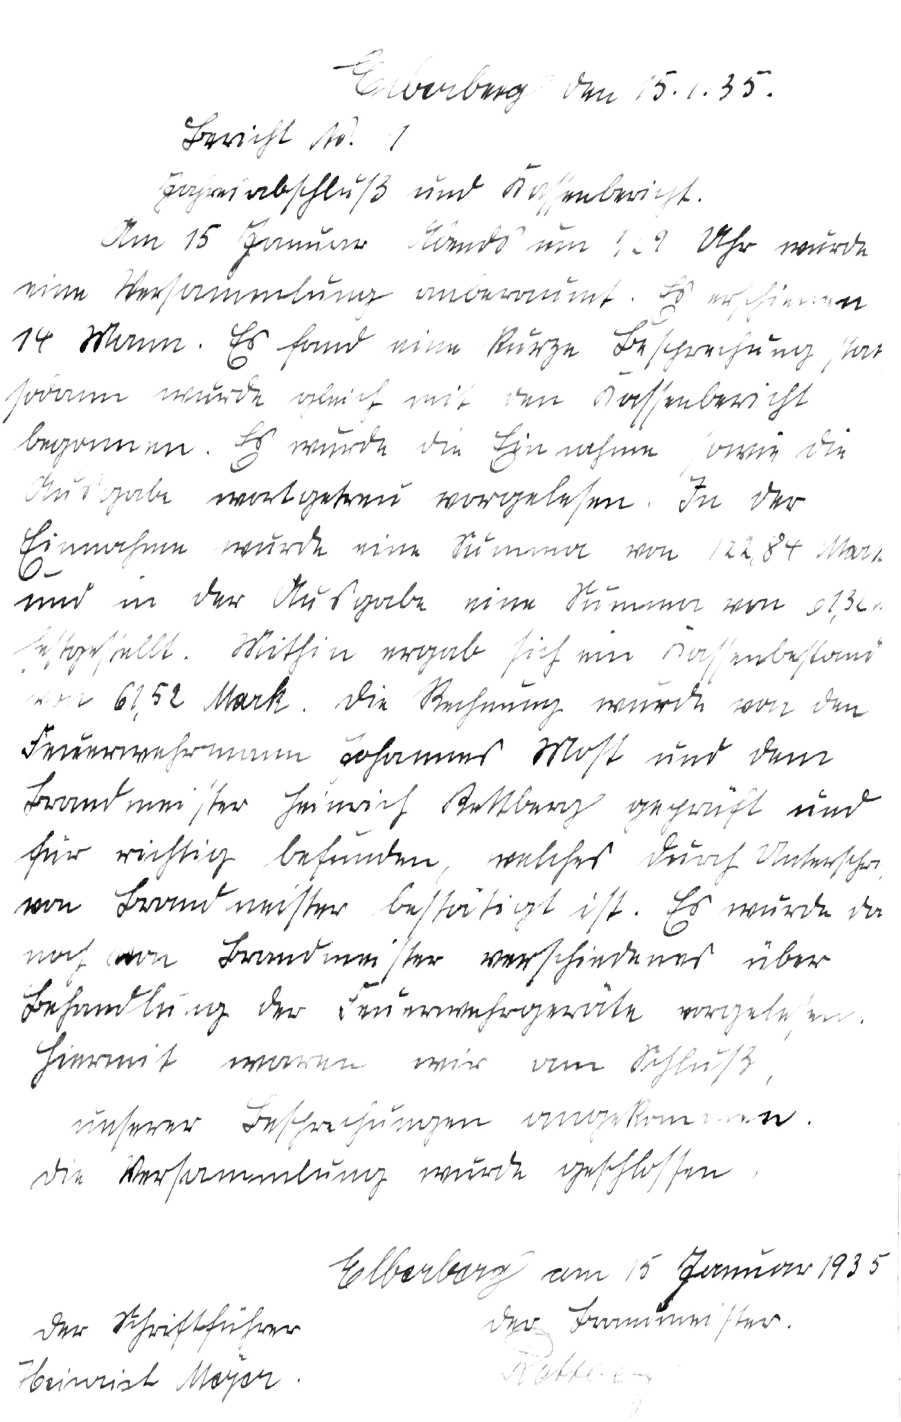 Elberberg den 15.1.35.
Bericht No. 1
Jahresabschluß und Kassenbericht.
Am 15 Januar Abends um Uhr wurde
eine Versammlung anberaumt. Es erschienen
14 Mann. Es fand eine kurze Besprechung stat
sodann wurde gleich mit den Kassenbericht
begonnen. Es wurde die Einnahme sowie die
Ausgabe wortgetreu vorgelesen. In der
Einnahme wurde eine Summa von 122,84 Mark
und in der Ausgabe eine Summa von
festgestellt. Mithin ergab sich ein Kassenbestand
von 61,52 Mark. Die Rechnung wurde von den
Feuerwehrmann Johannes Most und dem
Brandmeister Heinrich Rettberg geprüft und
für richtig befunden, welches durch Unterschri
von Brandmeister bestätigt ist. Es wurde da
noch von Brandmeister verschiedenes über
Behandlung der Feuerwehrgeräte vorgelesen.
Hiermit waren wir am Schluß,
unserer Besprechungen angekommen.
Die Versammlung wurde geschlossen.
Elberberg am 15 Januar 1935
Der Schriftführer der Brandmeister.
Heinrich Meyer. Rettberg